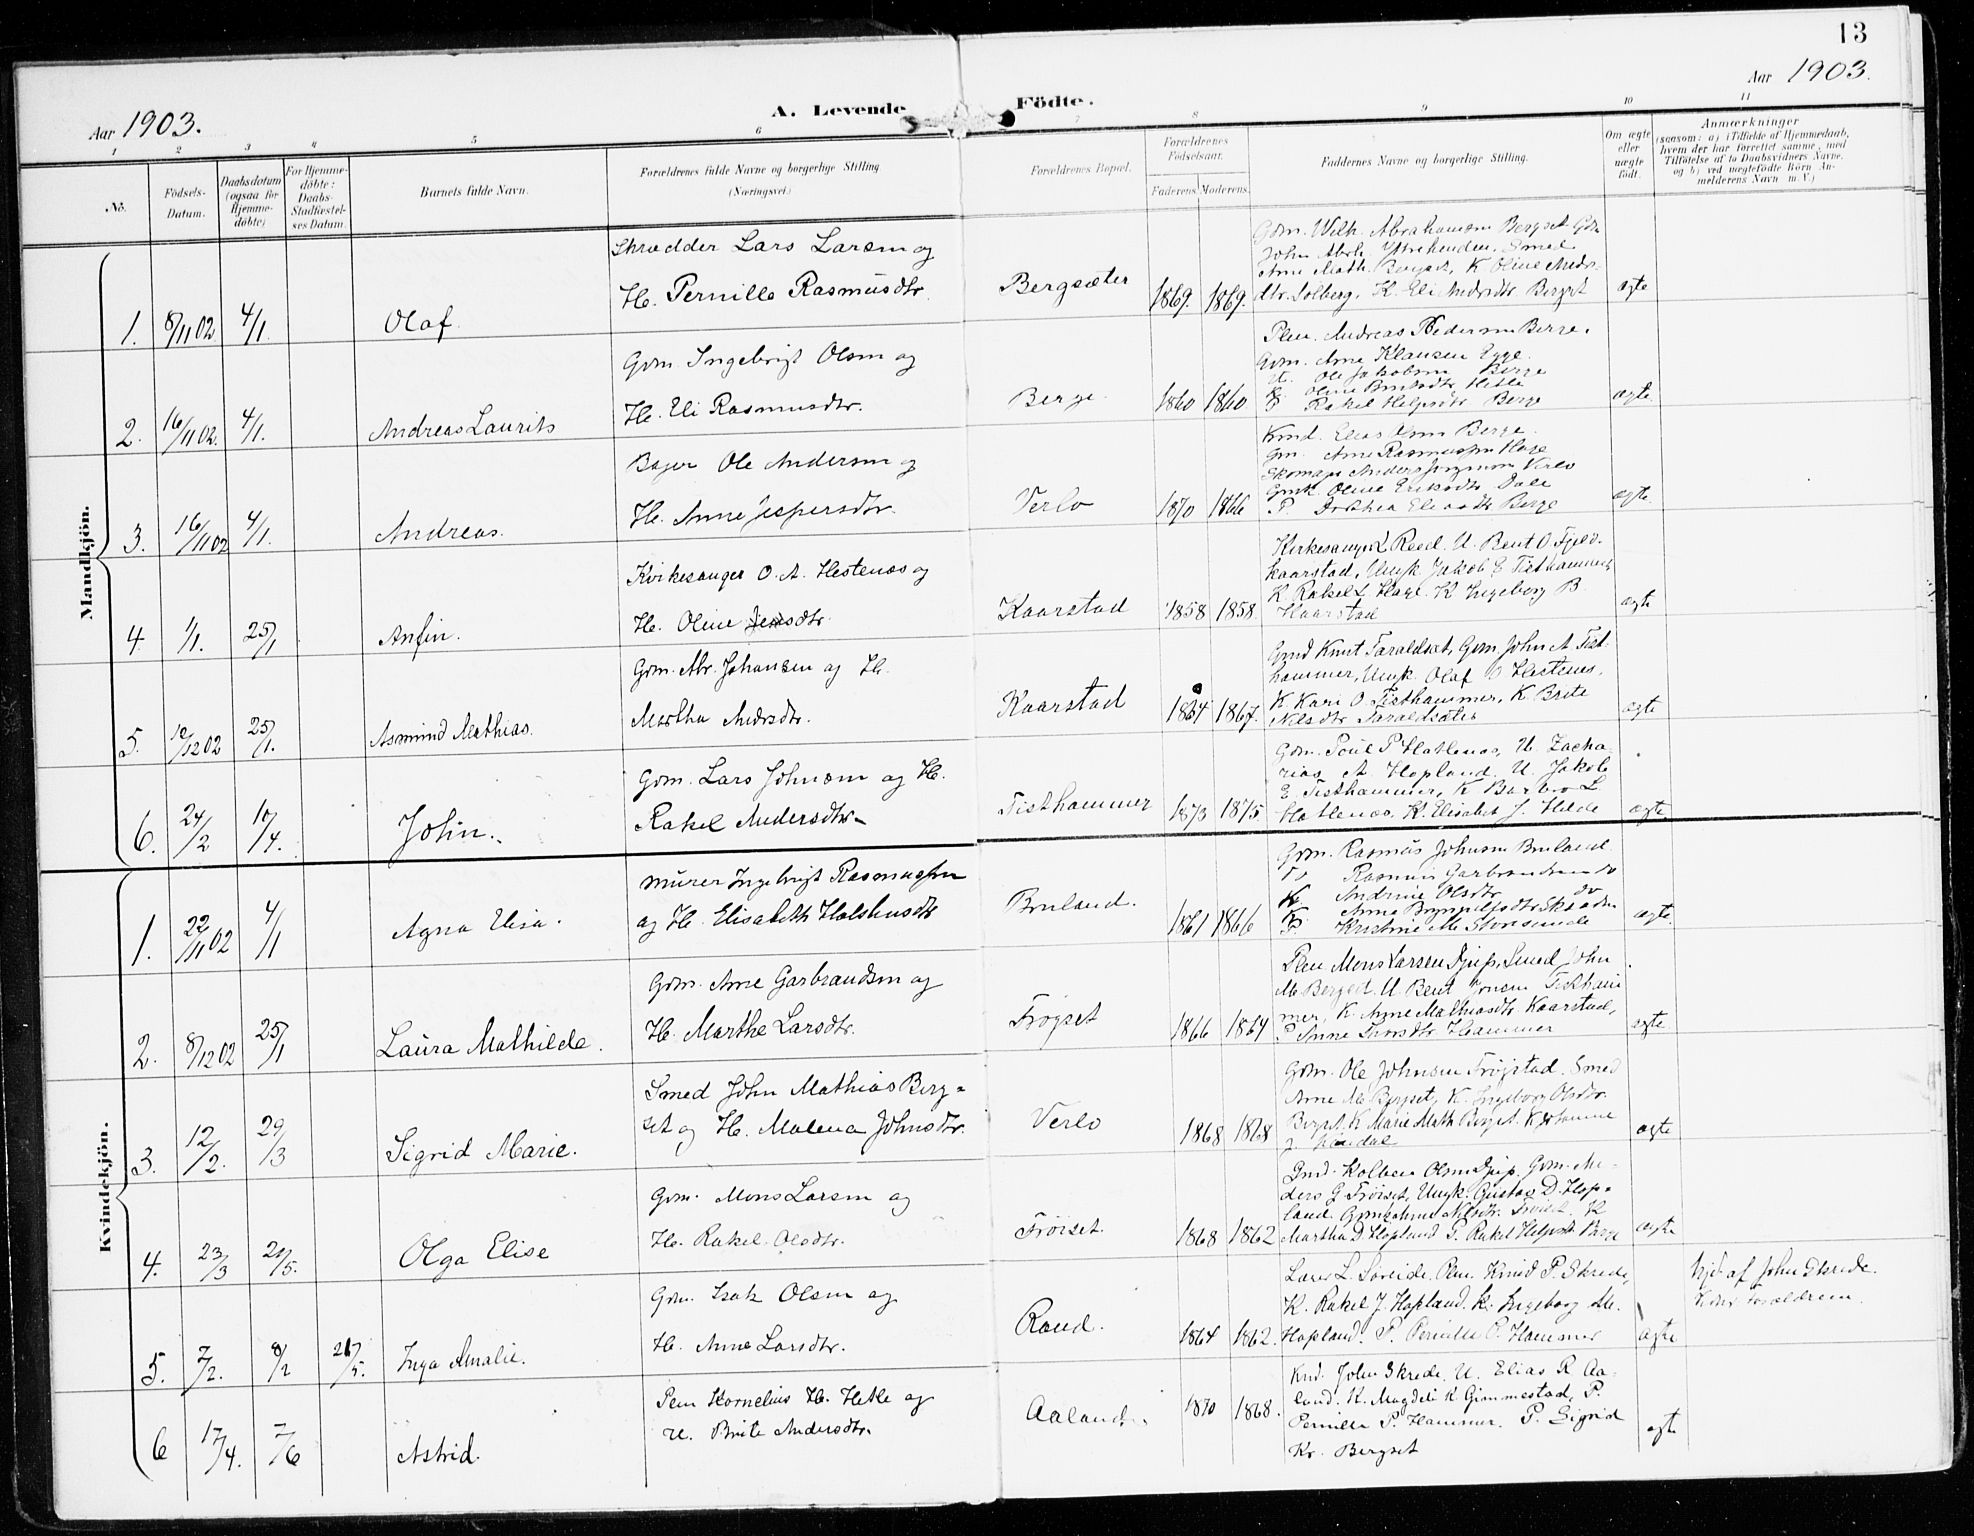 13
Aar 1903.
Aar 1903.
A. Levende Födte.
1 2 3 4 5 6 7 8 9 10 11
No.
Födsels-Datum.
Daabsdatum (ogsaa for Hjemme-döbte)
For Hjemme-döbte: Daabs-Stadfæstel-ses Datum.
Barnets fulde Navn.
Forældrenes fulde Navne og borgerlige Stilling (Næringsvei.)
Forældrenes Bopæl.
Forældrenes Födselsaar.
Faderens. Moderens.
Faddernes Navne og borgerlige Stilling.
Om ægte eller uægte födt.
Anmærkninger
(saasom: a) i Tilfælde af Hjemmedaab,
hvem der har forrettet samme, med
Tilföielse af to Daabsvidners Navne.
og b) ved uægtefödte Börn An-
melderens Navn m. V.)
Mandkjön.
Skrædder Lars Larsen og
H. Pernille Rasmusdtr.
1. 8/11 02 4/1. Olaf. Bergsæter 1869. 1869. ægte
Gdm. Wilh. Abrahamsen Bergset
John Abrh. Ytrehenden. Smed
Arne Math. Bergset, K. Oline Andr-
dtr. Solberg. K. Eli Andrsdtr Bergset
Gdm. Ingebrigt Olsen og
H. Eli Rasmusdtr.
2. 16/11 02. 4/1. Andreas Laurits Berge. 1860 1860 ægte.
Plen. Andreas Pedersen Berge.
Gdm. Arne Klausen Egge.
Ole Jakobsen Berge
K. Oline
P Rakel Helgesdtr Berge
Bager Ole Andersen og
H. Anne Jespersdtr.
3. 16/11 02 4/1. Andreas. Verlo 1870 1866 ægte.
Elias Olsen Berge.
Gm. Arne Rasmussen Hage
Skomager Anders Jørgensen Verlo
Gmk. Oline Eriksdtr Dale
P. Dorthea Eliasdtr Berge
Kirkesanger O. A. Hestenæs og
H. Oline Jensdtr.
4. 1/1. 25/1 Anfin. Kaarstad 1858 1858. ægte
Kirkesanger L Reed. U. Bent O. Fjeld-
kaarstad, Umgk. Jakob E Tisthammer,
K Rakel L Hage. K Ingeborg B.
Kaarstad
Gdm. Abr. Johansen og H.
Martha Andrsdtr.
5. 12/12 02 25/1. Asmund Mathias. Kaarstad 1864 1867. ægte
Gmd Knut Taraldset, Gdm. John A. Tist-
hammer, Umgk. Olaf O Hestenes,
K Kari O. Tisthammer, K. Brite
Nilsdtr Taraldsæter
Gdm. Lars Johnsen og H.
Rakel Andersdtr.
6. 24/2 10/4. John. Tisthammer 1873 1875 ægte
Gdm. Poul P. Hatlenes, U. Zacha-
rias A. Hopland. U. Jakob
E. Tisthammer, K Barbro L
Hatlenæs, K. Elisabet J. Hilde
Kvindekjön.
Murer Ingebrigt Rasmussen
og H. Elisabeth
1. 22/11 02 4/1 Agna Elisa. Bruland. 1861 1866 ægte.
Gdm. Rasmus Johnsen Bruland.
Do Rasmus Garbrandsen do
K Andrine Olsdtr do
K. Anna
P Kristine M.
Gdm. Arne Garbrandsen og
H. Marthe Larsdtr.
2. 8/12 02 25/1 Laura Mathilde. Frøyset 1866 1864 ægte
Plen Mons Larsen Djup, Smed John
M. Bergset. U Bent Jonsen Tistham
mer, K. Anne Mathiasdtr Kaarstad,
P Anne Hammer
Smed John Mathias Berg-
set og H. Malena Johnsdtr.
3. 12/2. 29/3 Sigrid Marie. Verlo 1868 1868 ægte
Gdm. Ole Johnsen Frøystad. Smed
Arne M. Bergset, K. Ingeborg Olsdtr.
Bergset. K Marie Math Bergset. K Johanne
Gdm. Mons Larsen og
H. Rakel Olsdtr.
4. 23/3 21/5. Olga Elise Frøiset. 1868 1862 ægte
Gmd. Kolben Olsen Djup, Gdm. An-
ders G Frøiset, Umgk. Gustav D. Hop-
land. Frøiset. K
Martha D. Hopland P. Rakel Helgesdtr Berge
Gdm. Isak Olsen og
H. Anne Larsdtr.
5. 7/2. 8/2 21/5. Inga Amalie. Raud. 1864 1862. ægte
Lærer L. Søreide. Plen. Knud P. Skrede,
K. Rakel J. Hopland. K. Ingeborg M.
Hopland. P. Pernille P. Hammer
Hjd. af John Skrede.
forældrene.
Plen Kornelius H. Hetle og
H. Brite Andersdtr.
6 17/4. 7/6 Astrid. Aaland. 1870 1868. ægte
John Skrede. U. Elias R Aa-
land. K. Magdeli K Gimmestad, P.
Pernille P. Hammer. P. Sigrid
Kr. Bergset